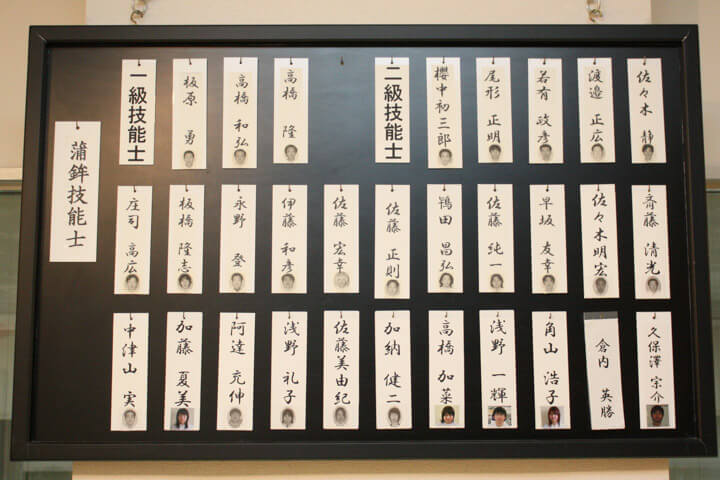 蒲鉾技能士
一級技能士
板原 勇
高橋 和弘
高橋 隆
二級技能士
櫻中初三郎
尾形 正明
若有 政彦
渡邊 正広
佐々木 静
庄司 高広
板橋 隆志
永野 登
伊藤 和彦
佐藤 宏幸
佐藤 正則
鴇田 昌弘
佐藤 純一
早坂 友幸
佐々木明宏
斉藤 清光
中津山 実
加藤 夏美
阿達 充伸
浅野 礼子
佐藤美由紀
加納 健二
高橋 加菜
浅野 一輝
角山 浩子
倉内 英勝
久保澤 宗介